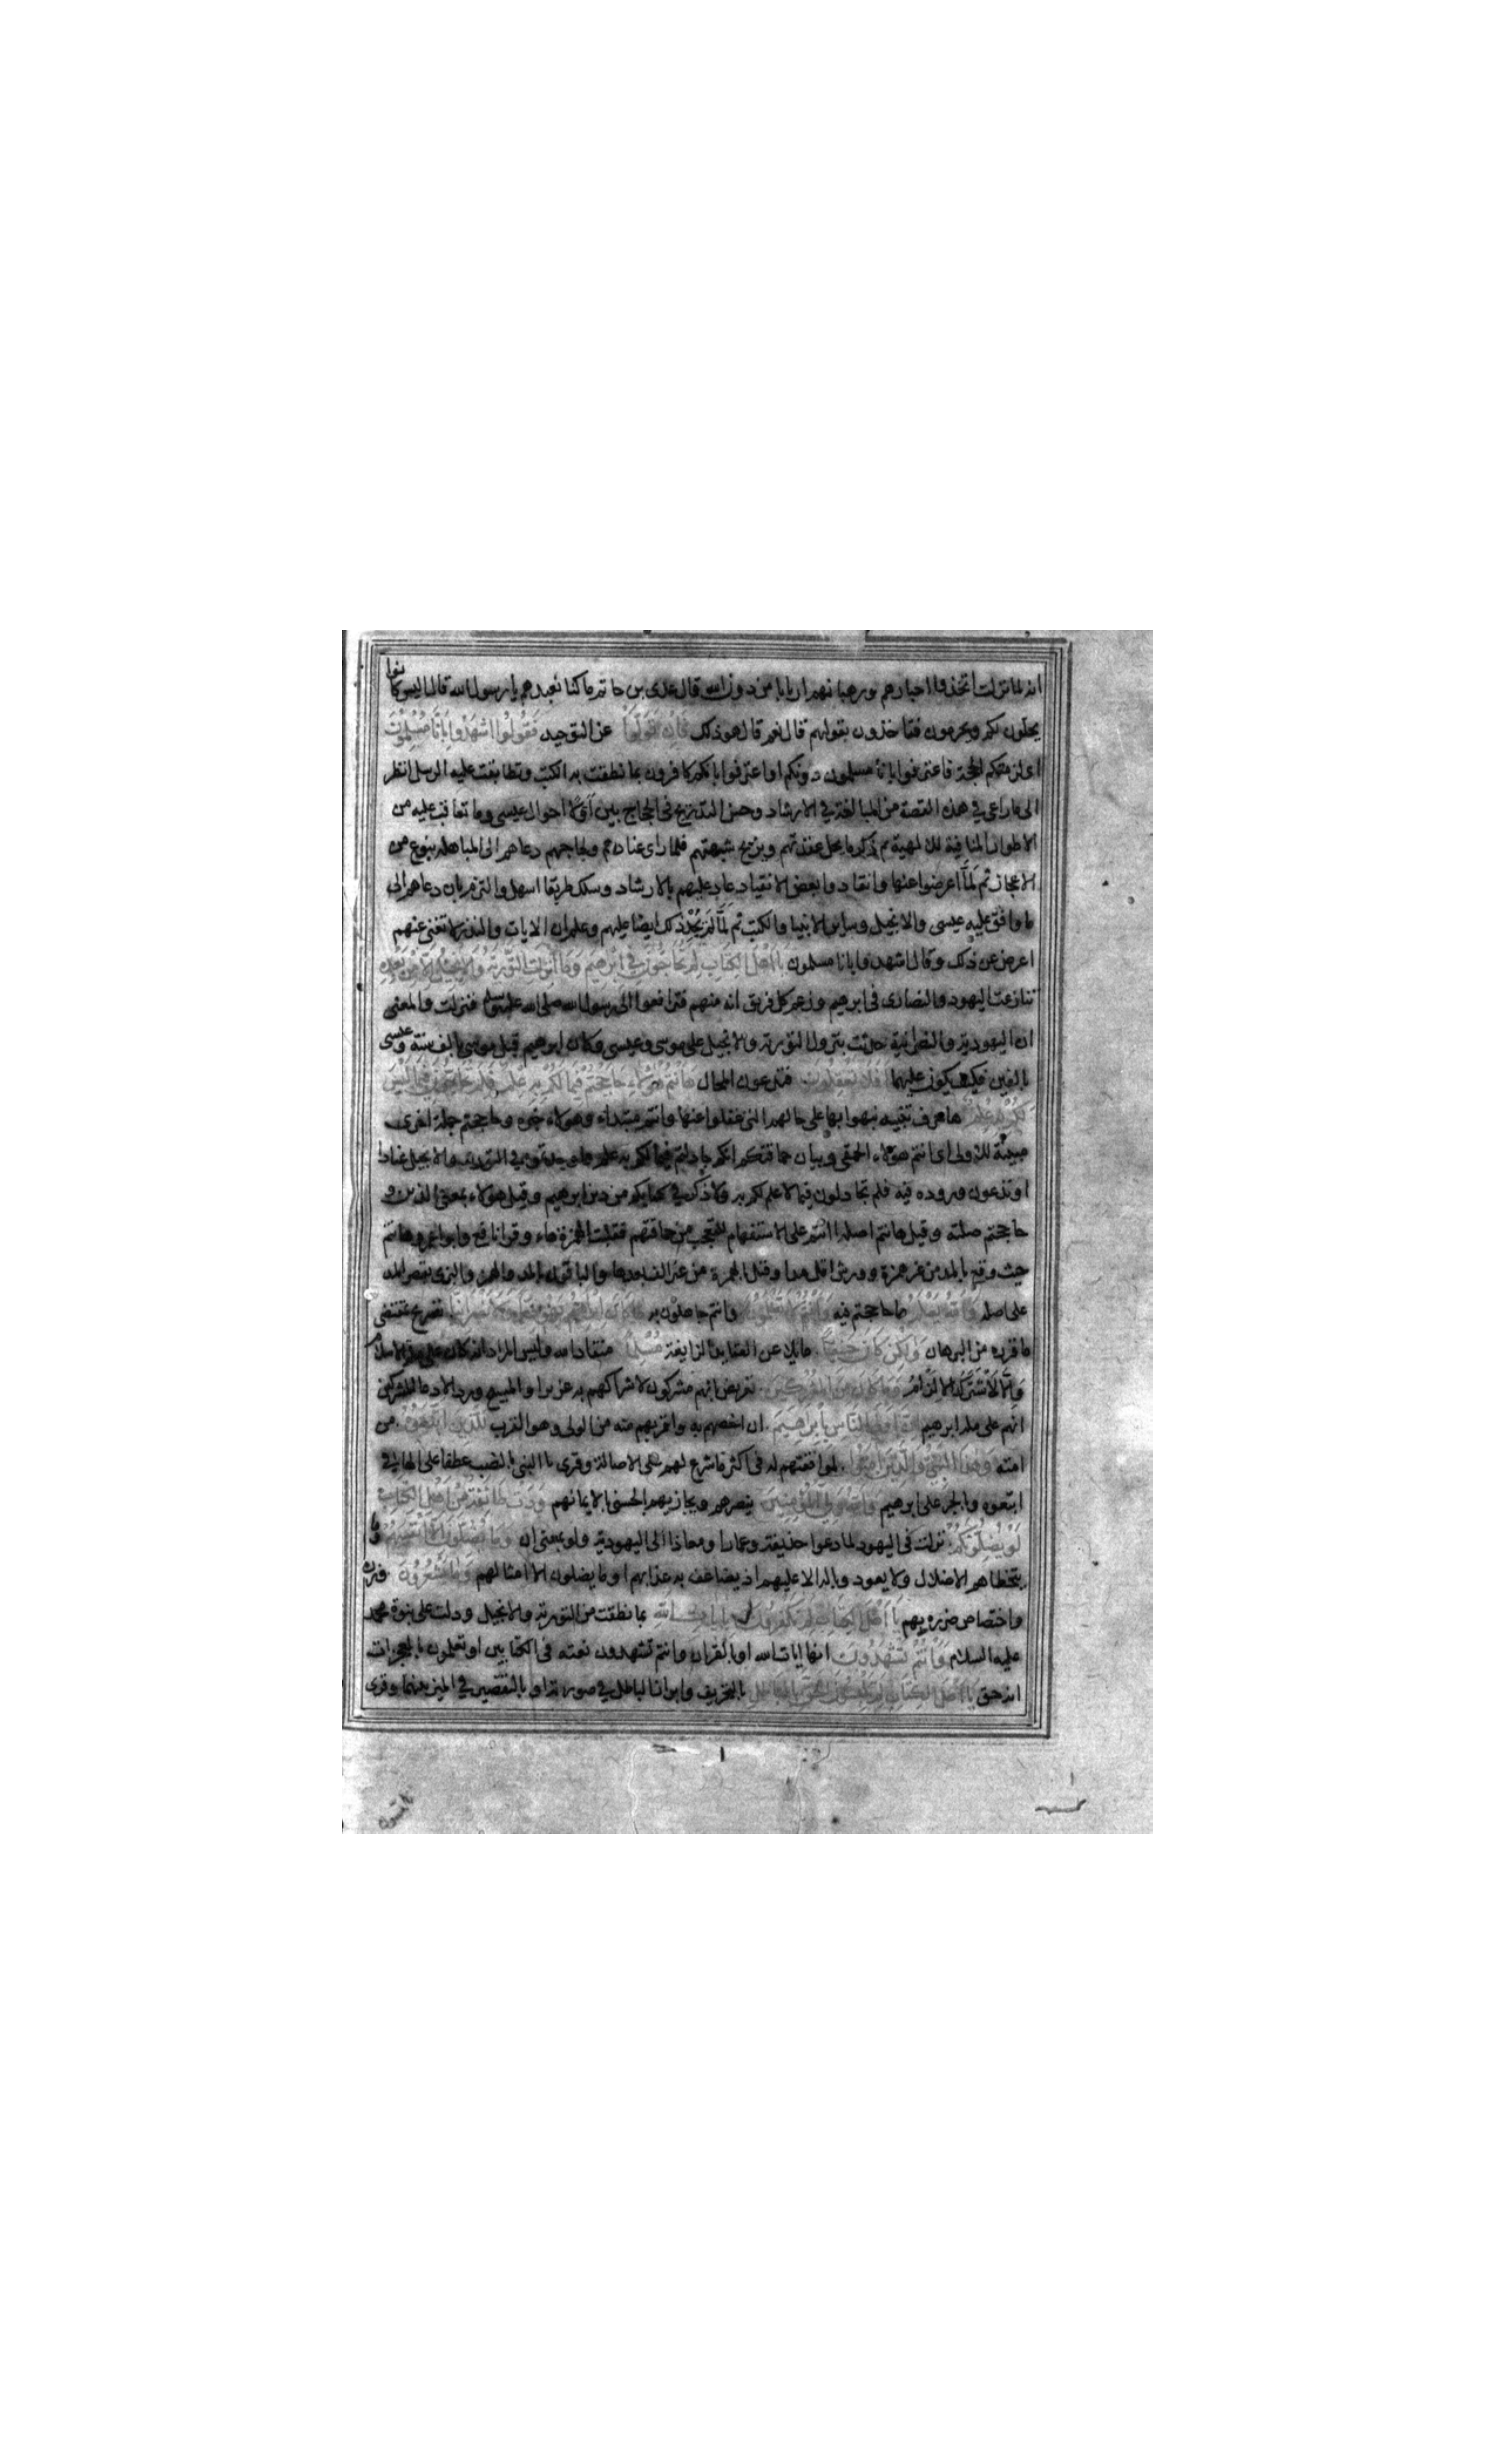 انه لما نزلت اتخذوا احبارهم ورهبانهم اربابا من دون الله قال عدى بن حاتم ما كنا نعبدهم يا رسول الله قال اليس كانوا
يحلون لكم ويحرمون فتاخذون بقولهم قال نعم قال هو ذلك فَاِنْ تَوَلَّوْا عن التوحيد فَقُولُوا اشْهَدُوا بِاَنَّا مُسْلِمُونَ
اى لزمتكم الحجة فاعترفوا بانا مسلمون دونكم او اعترفوا بانكم كافرون بما نطقت به الكتب وتطابقت عليه الرسل انظر
الى ما راعى في هذه القصة من المبالغة في الارشاد وحسن التدريج فى الحجاج بين اولا احوال عيسى وما تعاقب عليه من
الاطوار المنافية للالهية ثم ذكر ما يحل عقدتهم ويزيح شبهتهم فلما راى عنادهم ولجاجهم دعاهم الى المباهلة بنوع من
الاعجاز ثم لمّا اعرضوا عنها وانقادوا بعض الانقياد عاد عليهم بالارشاد وسلك طريقا اسهل والزم بان دعاهم الى
ما وافق عليه عيسى والانجيل وساير الانبيا والكتب ثم لمّا لم يُجْدِ ذلك ايضا عليهم وعلم ان الايات والنذر لا تغنى عنهم
اعرض عن ذلك وقال اشهدوا بانا مسلمون يَا اَهْلَ الْكِتَابِ لِمَ تُحَاجُّونَ فِي اِبْرَهِيمَ وَمَا اُنْزِلَتِ التَّوْرَيةُ وَالاِنْجِيلُ اِلَّا مِنْ بَعْدِهِ
تنازعت اليهود والنصارى فى ابرهيم وزعم كل فريق انه منهم فترافعوا الى رسول الله صلى الله عليه وسلم فنزلت والمعنى
ان اليهودية والنصرانية حدثت بنزول التورية والانجيل على موسى وعيسى وكان ابرهيم قبل موسى بالف سنة وعيسى
بالفين فكيف يكون عليهما اَفَلَا تَعْقِلُونَ فتدعون المحال هَا اَنْتُمْ هٰؤُلَاءِ حَاجَجْتُمْ فِيمَا لَكُمْ بِهِ عِلْمٌ فَلِمَ تُحَاجُّونَ فِيمَا لَيْسَ
لَكُمْ بِهِ عِلْمٌ ها حرف تنبيه نبهوا بها على حالهم التى غفلوا عنها وانتم مبتداء وهولاء خبره وحاججتم جملة اخرى
مبينة للاولى اى انتم هولاء الحمقى وبيان حماقتكم انكم جادلتم فيما لكم به علم مما وجدتموه في التورية والانجيل عنادا
او تدعون وروده فيه فلم تجادلون فيما لا علم لكم به ولا ذكر في كتابكم من دين ابرهيم وقيل هولاء بمعنى الذين و
حاججتم صلته وقيل ها انتم اصله اانتم على الاستفهام للتعجب من حماقتهم فقلبت الهمزة هاء وقرا نافع وابو عمرو ها انتم
حيث وقع بالمد من غير همزة وورش اقل مدا وقنبل بالهمزة من غير الف بعدها والباقون بالمد والهمز والبزى بقصر المد
على اصله وَاللهُ يَعْلَمُ ما حاججتم فيه وَاَنْتُمْ لَا تَعْلَمُونَ وانتم جاهلون به مَا كَانَ اِبْرَاهِيمُ يَهُودِيًّا وَلَا نَصْرَانِيًّا تصريح بمقتضى
ما قرره من البرهان وَلٰكِنْ كَانَ حَنِيفًا مايلا عن العقايد الزايغة مُسْلِمًا منقادا لله وليس المراد انه كان على ملة الاسلام
وَالَّا لاشْتَرَكَ الالْزَامُ وَمَا كَانَ مِنَ الْمُشْرِكِينَ تعريض بانهم مشركون لاشراكهم به عزيرا والمسيح ورد لادعا المشركين
انهم على ملة ابرهيم اِنَّ اَوْلَى النَّاسِ بِاِبْرَاهِيمَ ان اخصهم به واقربهم منه من الولى وهو القرب لَلَّذِينَ اتَّبَعُوهُ من
امته وَهٰذَا النَّبِيُّ وَالَّذِينَ اٰمَنُوا لموافقتهم له فى اكثر ما شرع لهم على الاصالة وقرى والنبى بالنصب عطفا على الها في
اتبعوه وبالجر على ابرهيم وَاللهُ وَلِيُّ الْمُؤْمِنِينَ ينصرهم ويجازيهم الحسنى لايمانهم وَدَّتْ طَائِفَةٌ مِنْ اَهْلِ الْكِتَابِ
لَوْ يُضِلُّونَكُمْ نزلت فى اليهود لما دعوا حذيفة وعمارا ومعاذا الى اليهودية ولو بمعنى ان وَمَا يُضِلُّونَ اِلَّا اَنْفُسَهُمْ وما
يتخطاهم الاضلال ولا يعود وباله الا عليهم اذ يضاعف به عذابهم او ما يضلون الا امثالهم وَمَا يَشْعُرُونَ وزره
واختصاص ضرره بهم يَا اَهْلَ الْكِتَابِ لِمَ تَكْفُرُونَ بِاٰيَاتِ اللهِ بما نطقت من التورية والانجيل ودلت على نبوة محمد
عليه السلام وَاَنْتُمْ تَشْهَدُونَ انها ايات الله او بالقران وانتم تشهدون نعته فى الكتابين او تعلمون بالمعجزات
انه حق يَا اَهْلَ الْكِتَابِ لِمَ تَلْبِسُونَ الْحَقَّ بِالْبَاطِلِ بالتحريف وابراز الباطل في صورته او بالتقصير في الميز بينهما وقرى